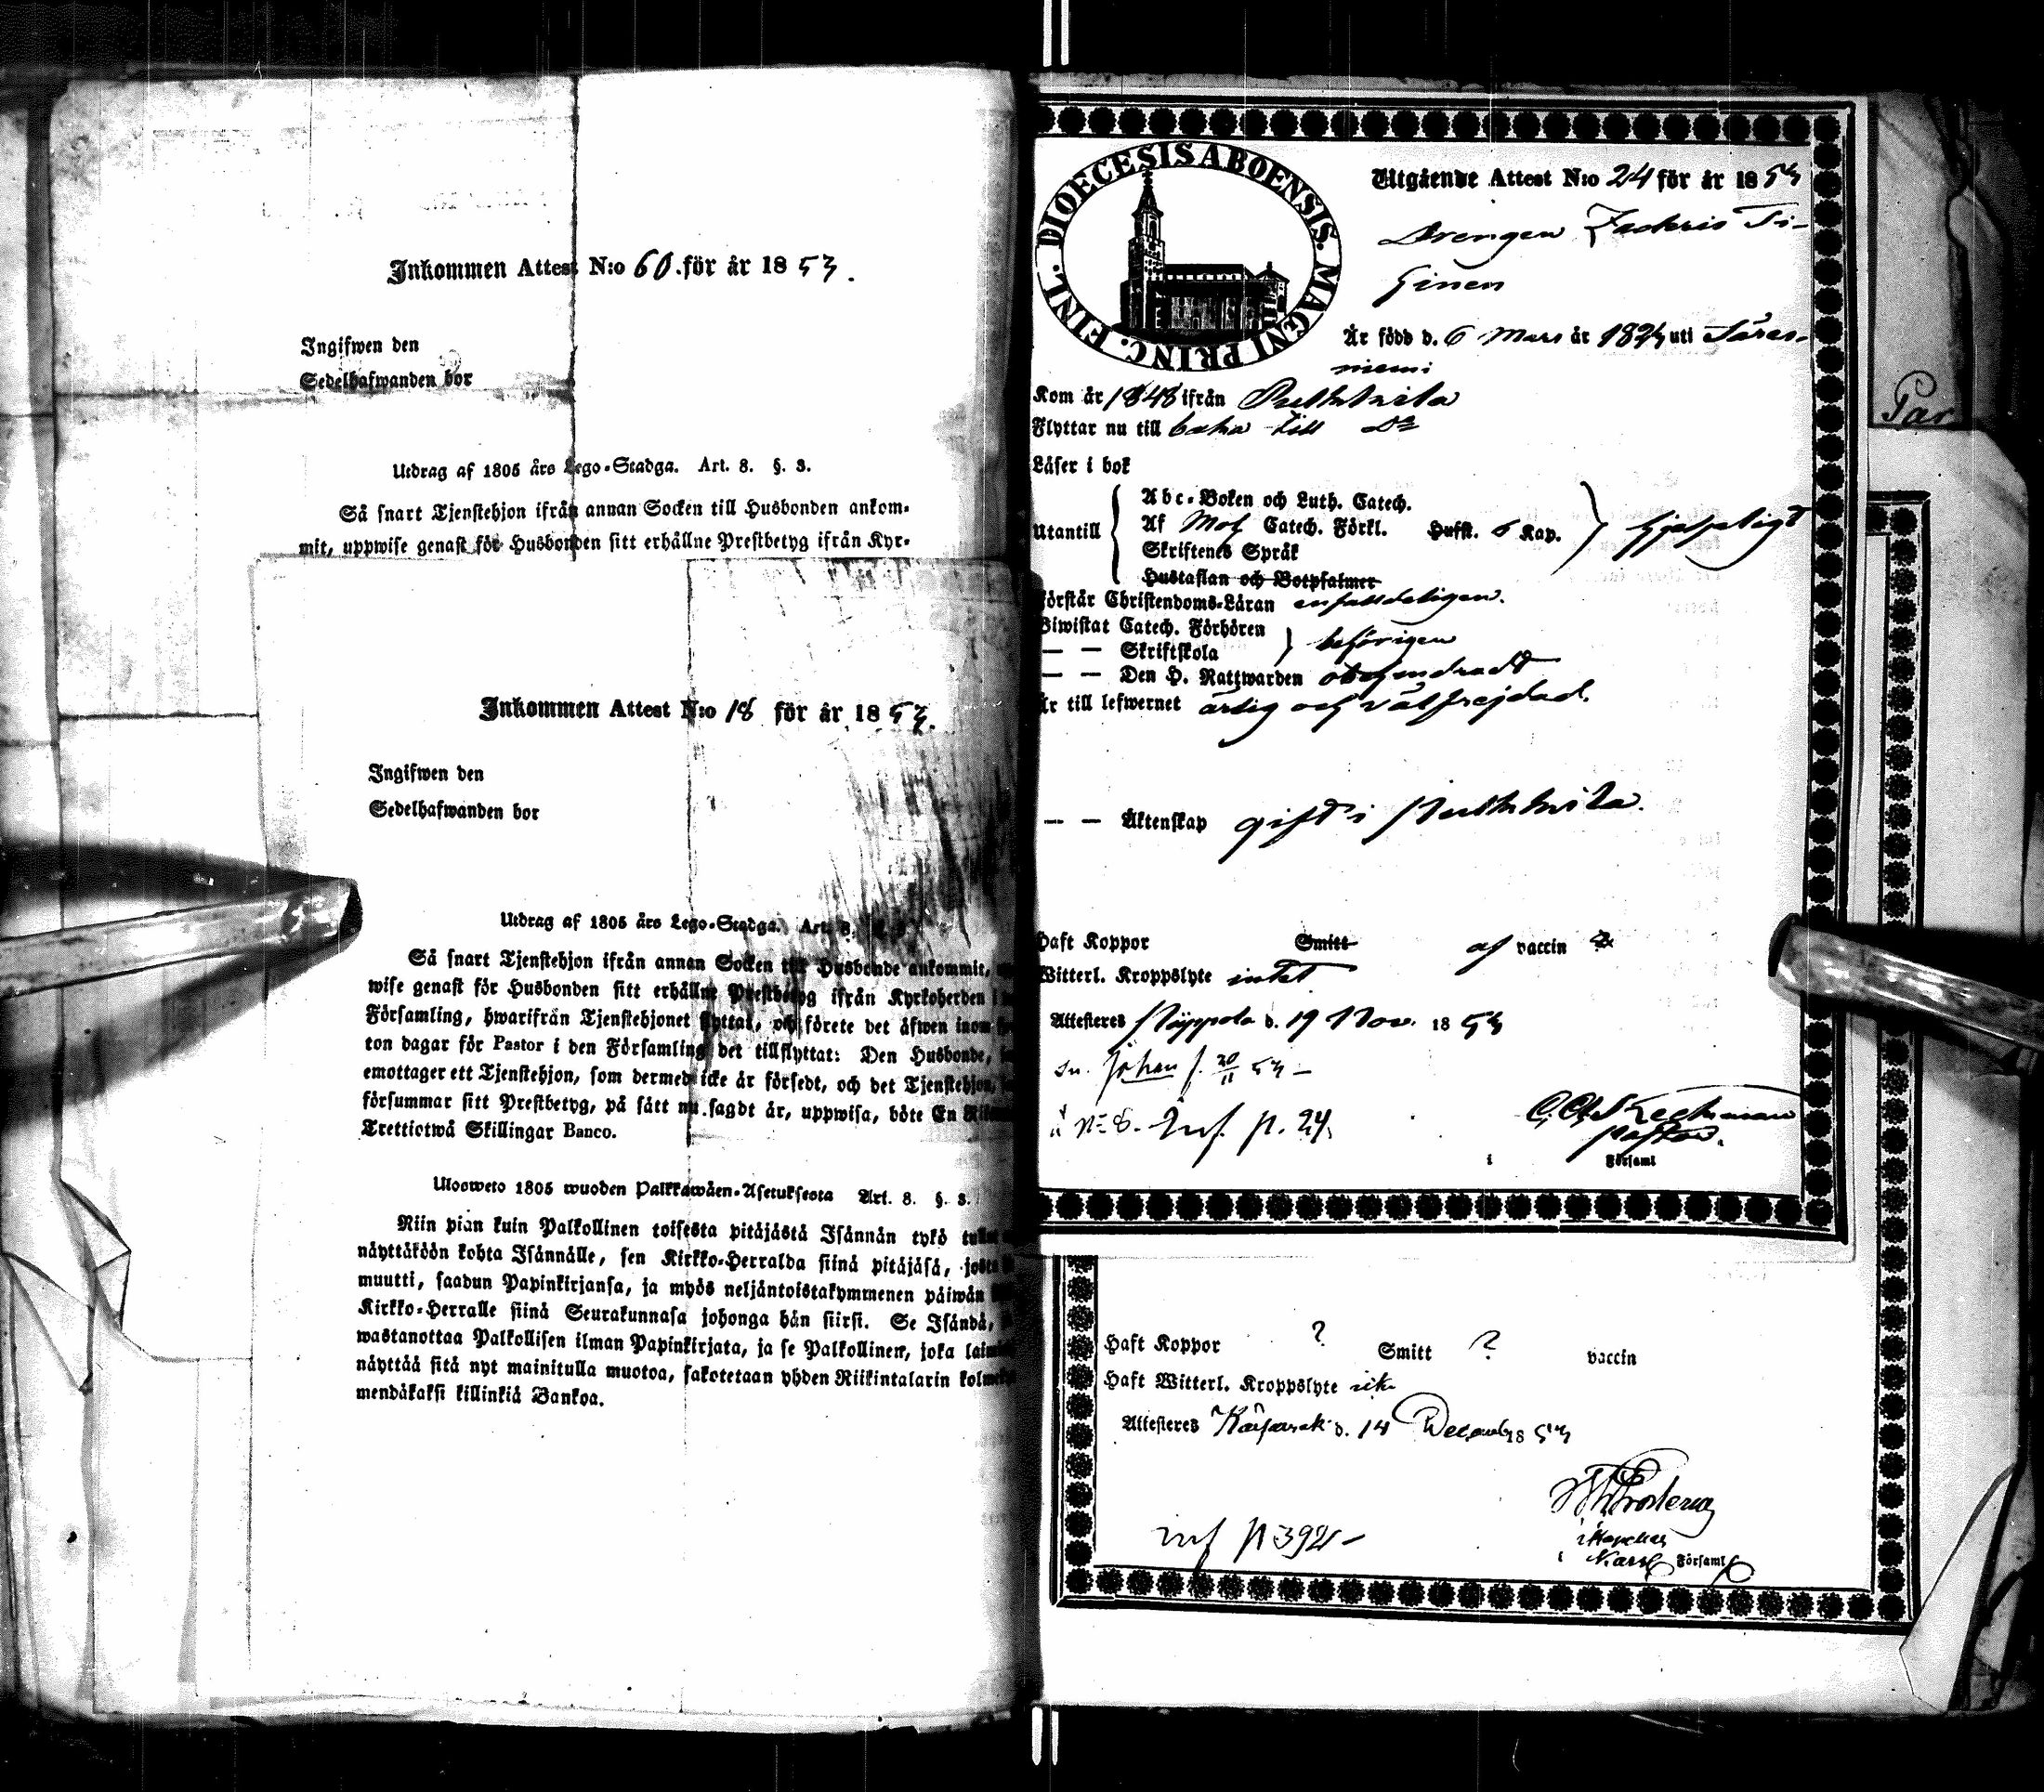 Inkommen Attest N:o 60. för år 1853.
Ingifwen den
Sedelhafwanden bor
Utdrag af 1805 års Lego-Stadga. Art. 8. §. 3.
Så snart Tjenstehjon ifrån annan Socken till Husbonden ankom-
mit, uppwise genast för Husbonden sitt erhållne Prestbetyg ifrån Kyr-
Inkommen Attest N:o 18 för år 1853.
Ingifwen den
Sedelhafwanden bor
Utdrag af 1805 års Lego-Stadga. Art. 8.
Så snart Tjenstehjon ifrån annan Socken till Husbonde ankommit,
wise genast för Husbonden sitt erhållne Prestbetyg ifrån Kyrkoherden i
Församling, hwarifrån Tjenstehjonet flyttat, och förete det äfwen inom
ton dagar för Pastor i den Församling det tillflyttat: Den Husbonde,
emottager ett Tjenstehjon, som dermed icke är försedt, och det Tjenstehjon,
försummar sitt Prestbetyg, på sätt nu sagdt är, uppwisa, böte En
Trettiotwå Skillingar Banco.
Ulosweto 1805 wuoden Palkkawäen-Asetuksesta Art. 8. §. 3.
Niin pian kuin Palkollinen toisesta pitäjästä Isännän tykö
näyttäköön kohta Isännälle, sen Kirkko-Herralda siinä pitäjäsä, josta
muutti, saadun Papinkirjansa, ja myös neljäntoistakymmenen päiwän
Kirkko-Herralle siinä Seurakunnasa johonga hän siirsi. Se Isändä,
wastanottaa Palkollisen ilman Papinkirjata, ja se Palkollinen, joka
näyttää sitä nyt mainitulla muotoa, sakotetaan yhden Riikintalarin
mendäkaksi killinkiä Bankoa.
DIOECESIS ABOENSIS. MAGNI PRINC. FINL.
Utgående Attest N:o 24 för år 1853
Drengen Zachris Ti-
Är född d. 6 Mars år 1823 uti Säres-
niemi
Kom år 1848 ifrån Pulkkila
Flyttar nu till baka till Do
Läser i bok
Utantill
Abc-Boken och Luth. Catech.
Af Catech. Förkl. Hufst. 6 Kap. hjelpligt
Skriftenes Språk
Hustaflan och Botpsalmer
Förstår Christendoms-Läran enfalldeligen.
Biwistat Catech. Förhören
— — Skriftskola behörigen
— — Den H. Nattwarden
Är till lefwernet ärlig och välfrejdad.
— — Äktenskap gift i Pulkkila.
Haft Koppor Smitt af vaccin
Witterl. Kroppslyte intet
Attesteres d. 19 Nov. 1853
Johan f. 20/11 53 —
No 8. Inf. p. 24.
Pastor.
i Församl
Par
Haft Koppor ? Smitt ? vaccin
Haft Witterl. Kroppslyte
Attesteres d. 14 1853
inf p 392 –
i Församl